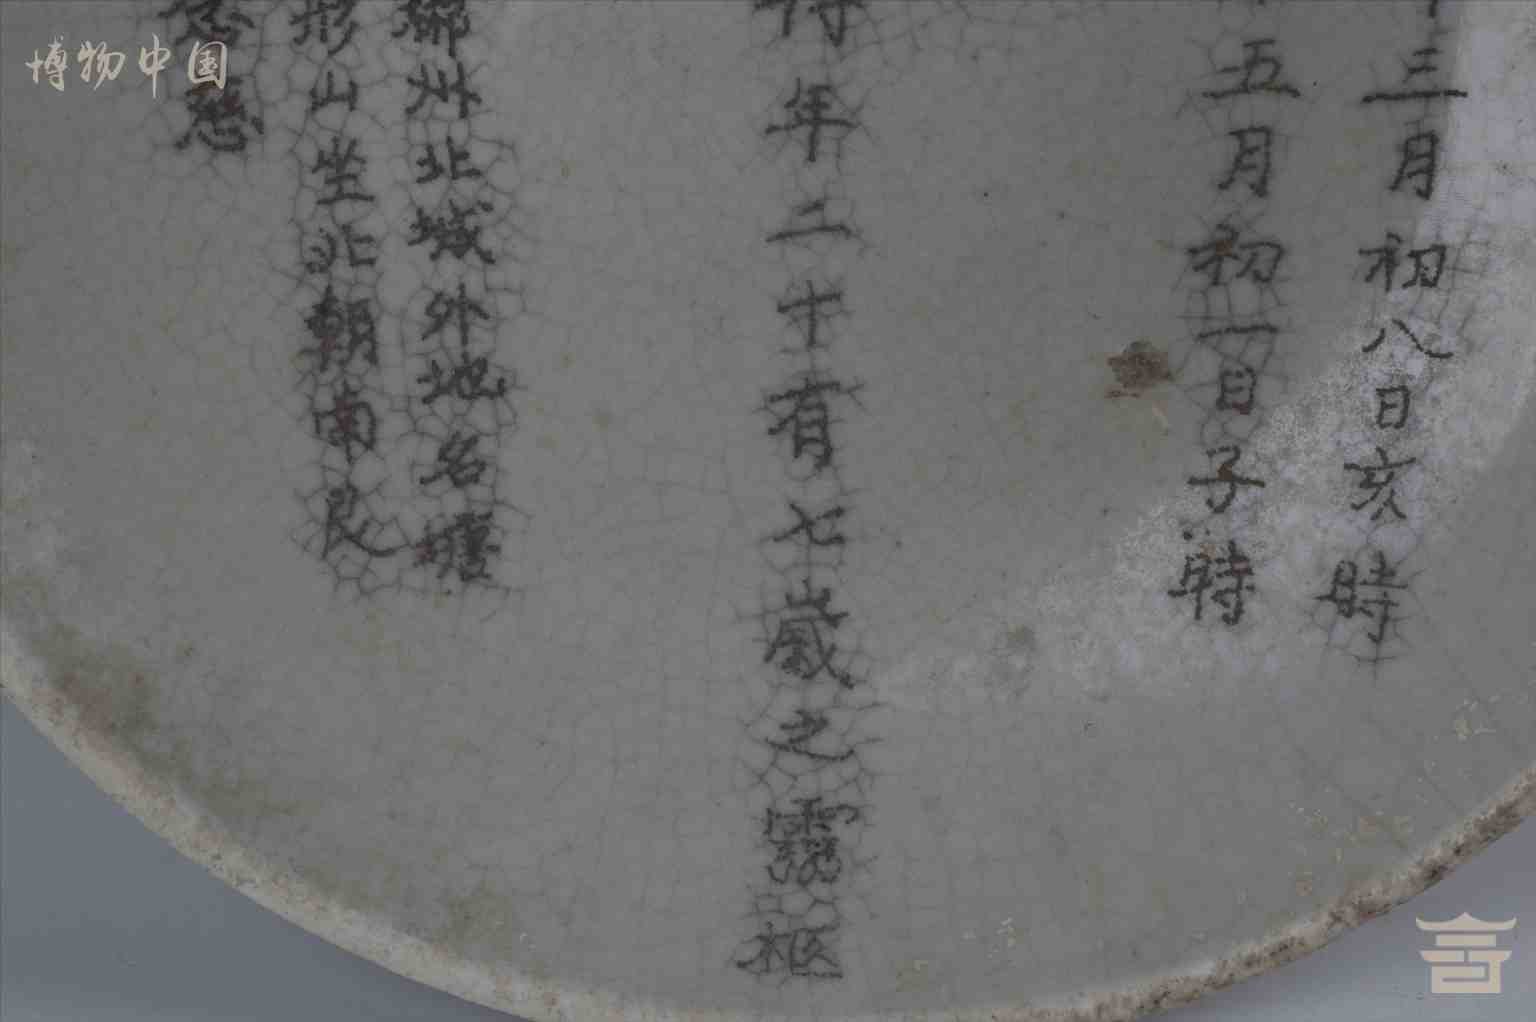 三月初八日亥時
五月初一日子時
得年二十有七歲之靈柩
州北城外地名
形山坐北朝南艮
博物中国